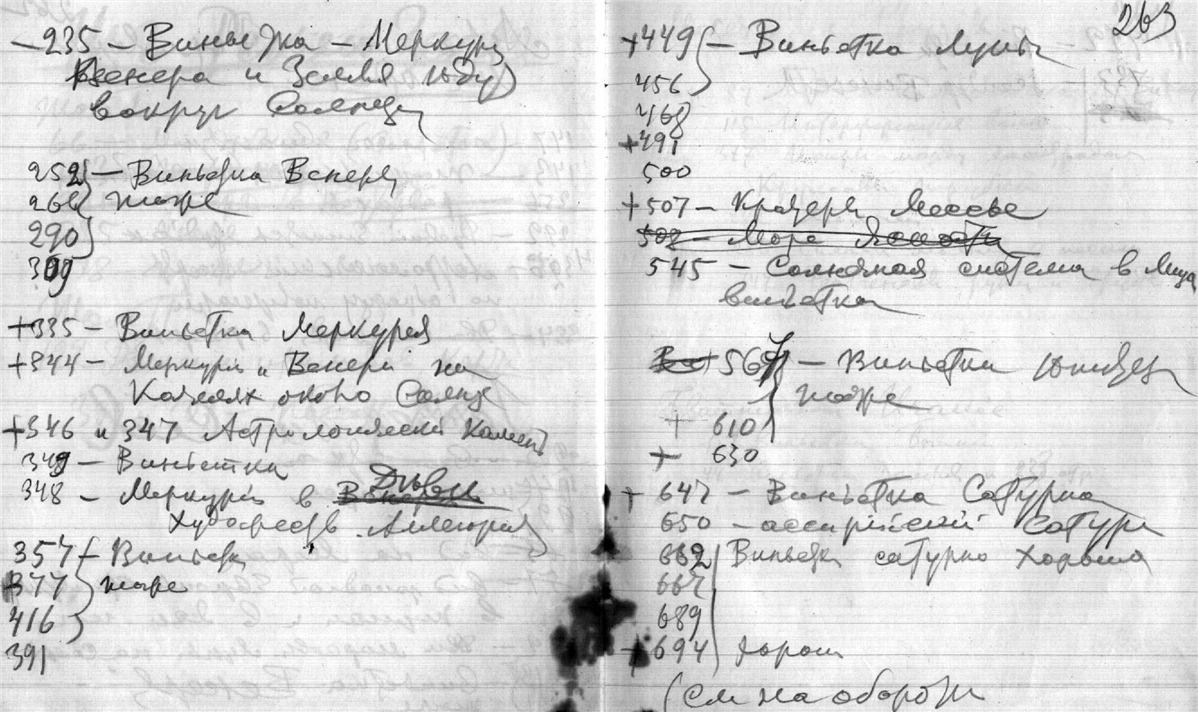 263
– 235 – Виньетка – Меркурий
Венера и Земля идут
вокруг Солнца
252 – Виньетка Венеры
268 тоже
290
309
+335 – Виньетка Меркурия
+344 – Меркурий и Венера на
Качелях около Солнца
+346 и 347 Астрологические Камеи
349 – Виньетка
348 – Меркурий в
357 – Виньетка
+377 тоже
416
391
+449 – Виньетка Луны
456
468
+491
500
+507 – Кратеры Мессье
508 – Море Ясности
545 – Солнечная система в Лицах
виньетка
+ 567 – Виньетки Юпитера
тоже
+ 610
+ 630
+ 647 – Виньетка Сатурна
650 – ассирийский Сатурн
662 Виньетка сатурна Хороша
667
689
+ 694 хорош
(см на обороте